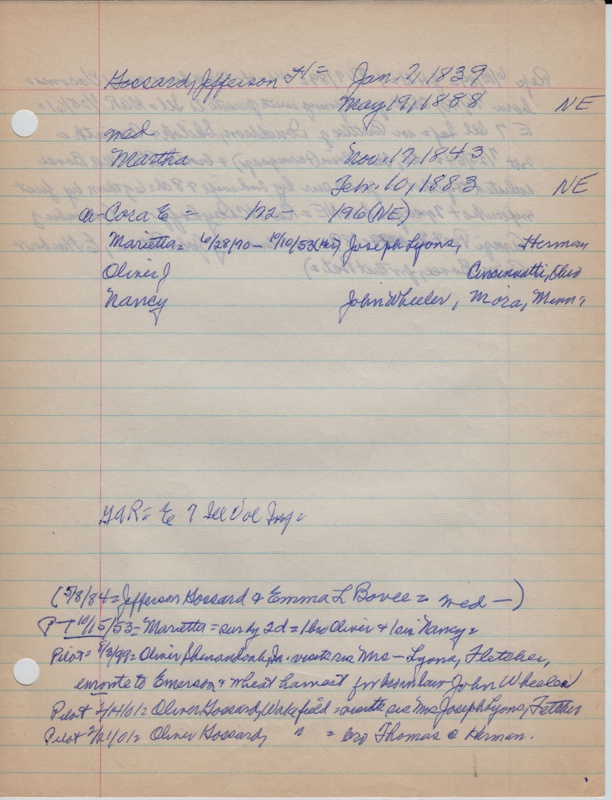 Gossard, Jefferson N = Jan. 2, 1839
May 19, 1888 NE
med
Martha Nov. 17, 1843
Febr. 10, 1883 NE
a- Cora E = 1/72 - 1/96 (NE)
Marietta = 6/28/70 - 10/10/53 Joseph Lyons, Herman
Oliver J Cincinnatti, Ohio
Nancy John Wheeler, Mora, Minn,
GAR = E 7 Ill Vol Inf =
(5/8/84 = Jefferson Gossard & Emma L Bovee = med -)
P-T 10/15/53 = Marietta = sur by 2d = 1 bro Oliver & 1 sis Nancy =
Pilot = 8/3/99 = Oliver Shenandoah, Ia. visits sis Mrs - Lyons, Fletcher,
enroute to Emerson & wheat harvest for bro in law John Wheeler
Pilot 2/14/01 = Oliver Gossard, Wakefield = visits sis Mrs Joseph Lyons, Fletcher
Pilot 2/21/01 = Oliver Gossard, " = bro Thomas @ Herman.